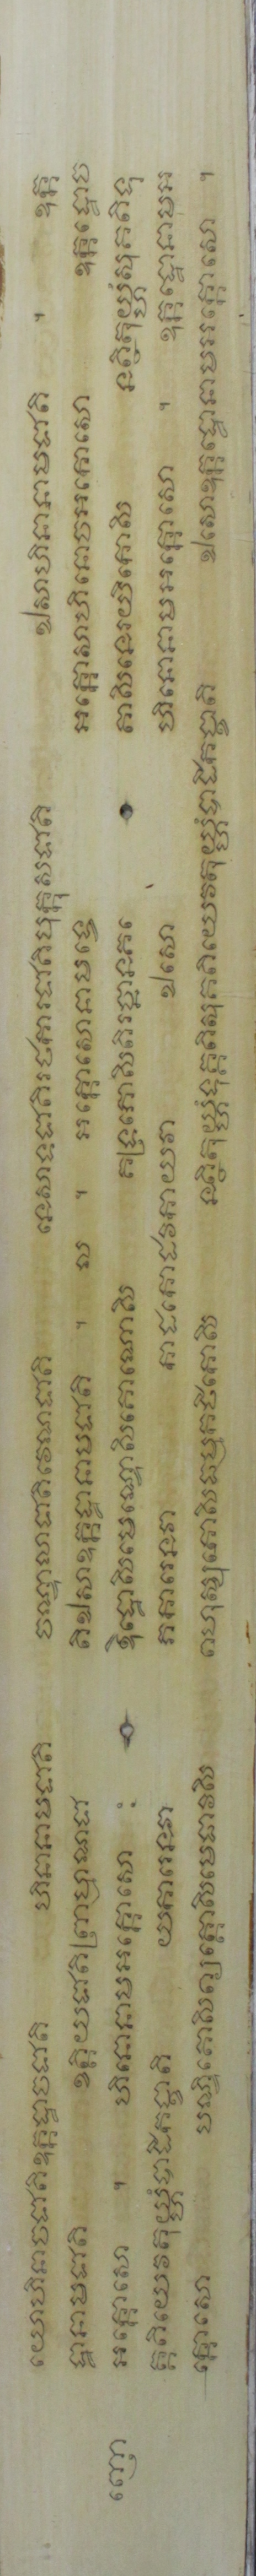 យោហិនាចជាតិឧក្កដ្ឋាចជាតិ ហិនានាមជាតិ ចណ្ឌាលជាតិវេណជាតិ នេសាទជាតិរថការជាតិបុក្កុសជាតិ ឯសាហិនានាមជាតិ ។ ឧក្ក
ដ្ឋានាមជាតិ ខត្តិយជាតិព្រាហ្មណជា តិឯសាឧក្កដ្ឋានាមជាតិ ។ ល ។ អក្កោសោនាមទ្វេ អក្កោសាហិនោចអកោសោ ឧក្កដ្ឋោច
ញោ អក្កោសោ ។ ហិនោនាមអក្កោសោ ៈ ឱដ្ឋោសិមេណ្ឌោសិគោណោសិ គទ្រភោសិតិរច្ឆានគ តោសិនេរយិកោសិ នត្ថិតុយ្ហំសុគតិទុ
គ្គតិយេវតុយ្ហំបាដិកង្ខាតិ យការេនវា ភការេនវា កាដកោដចិកាយវា ឯសោ ហិនោនាមអក្កោសោ ។ ឧក្កដ្ឋោនាមអ
ក្កោសោ បណ្ឌិតោសិព្យត្តោសិមេធាវសិ ពហុស្សុតោសិធម្មកថិកោសិ នត្ថិតុយ្ហំទុគ្គតិសុគតិយេវតុយ្ហំបាដិកង្ខាតិ ឯសោឧក្កដ្ឋោនាមអក្កោសោ ។